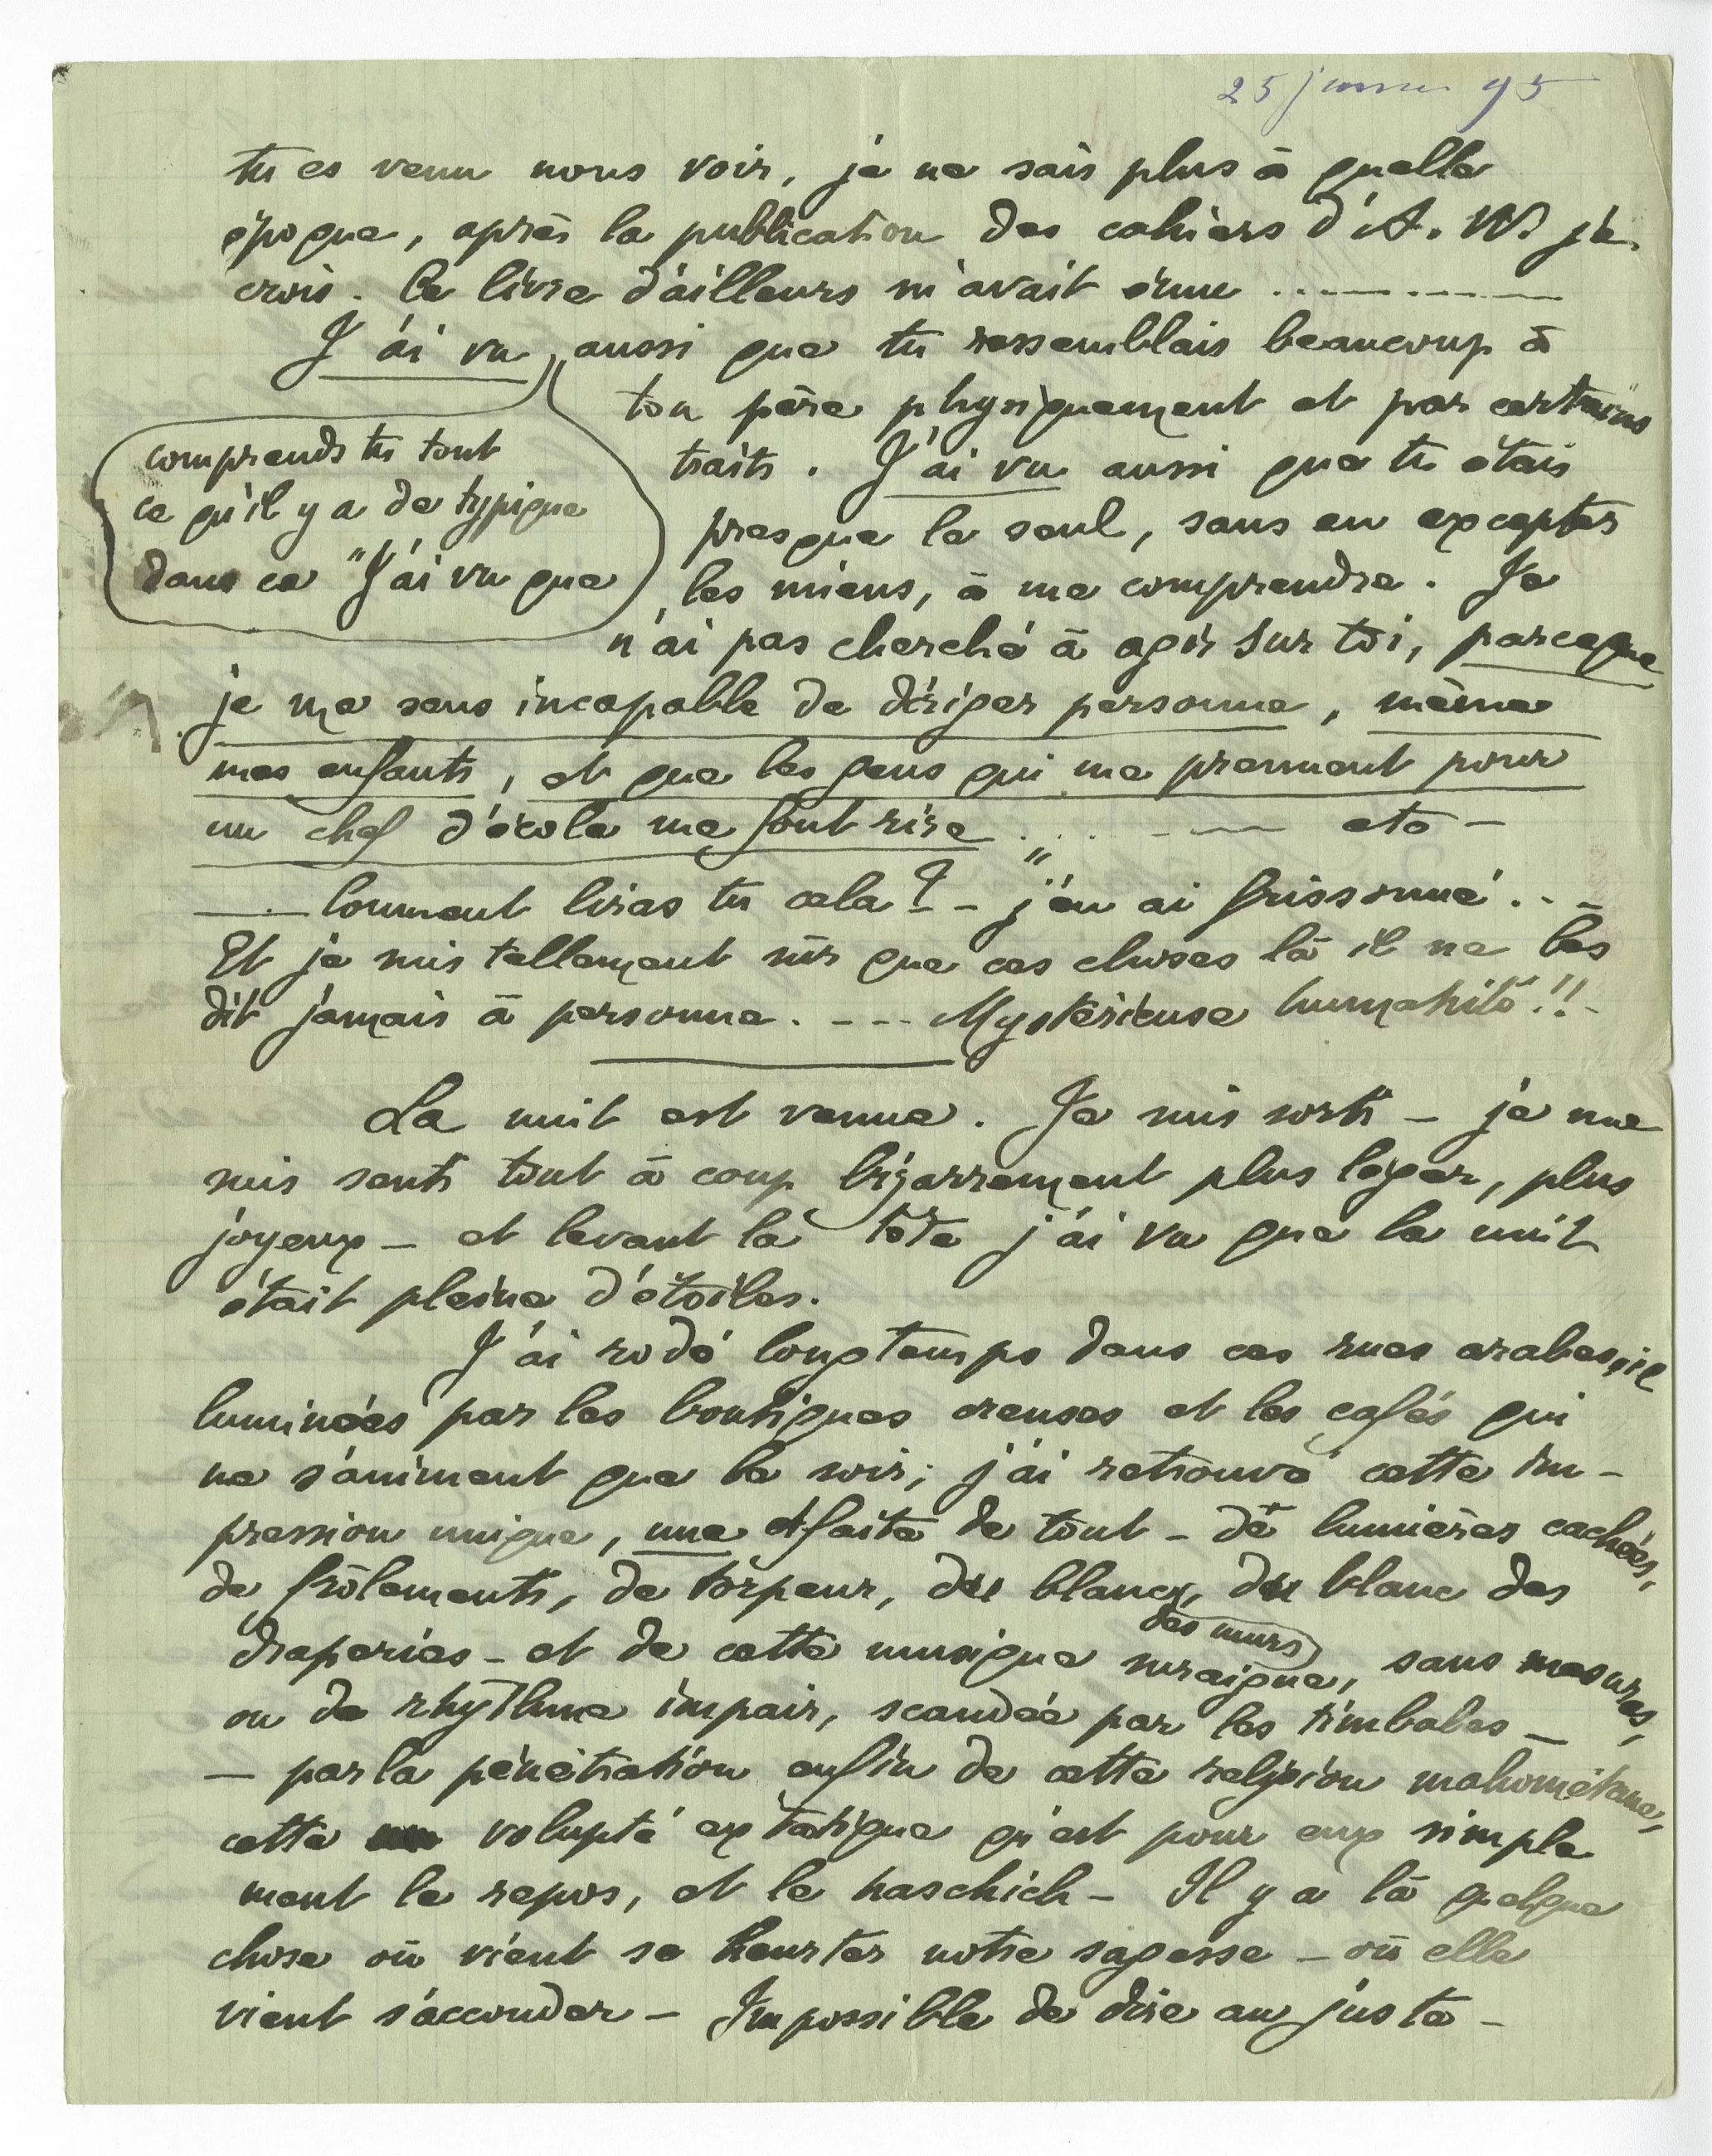 25 janvier 95
tu es venu nous voir, je ne sais plus à quelle
époque, après la publication des cahiers d'A. W. je
crois. Ce livre d'ailleurs m'avait ému ...........
J'ai vu aussi que tu ressemblais beaucoup à
ton père physiquement et par certains
traits. J'ai vu aussi que tu étais
presque le seul, sans en excepter
les miens, à me comprendre. Je
comprends tu tout
ce qu'il y a de typique
dans ce "J'ai vu que
n'ai pas cherché à agir sur toi, parceque
je me sens incapable de diriger personne, même
mes enfants, et que les gens qui me prennent pour
un chef d'école me font rire ..... etc –
— Comment liras tu cela? – "j'en ai frissonné...
Et je suis tellement sûr que ces choses là il ne les
dit jamais à personne. --- Mystérieuse humanité!! –
La nuit est venue. Je suis sorti – je me
suis senti tout à coup bizarrement plus léger, plus
joyeux – et levant la tête j'ai vu que la nuit
était pleine d'étoiles.
J'ai rodé longtemps dans ces rues arabes, il
luminées par les boutiques creuses et les cafés qui
ne s'animent que le soir; j'ai retrouvé cette im-
pression unique, une et faite de tout – de lumières cachées,
de frôlements, de torpeur, du blanc, du blanc des
des murs
draperies – et de cette musique suraigue, sans mesures,
ou de rhythme impair, scandée par les timbales –
– par la pénétration enfin de cette religion mahométane,
cette volupté extatique qu'est pour eux simple
ment le repos, et le haschich – Il y a là quelque
chose où vient se heurter notre sagesse – où elle
vient s'accouder – Impossible de dire au juste –